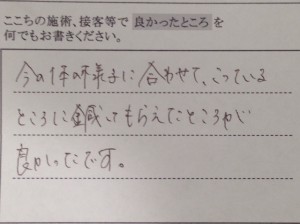 ここちの施術、接客等で良かったところを
何でもお書きください。
今の体の様子に合わせて、こっている
ところに鍼してもらえたところが
良かったです。